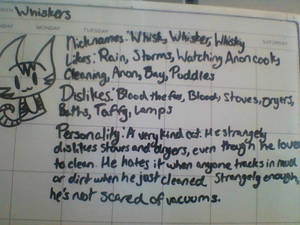 Whiskers
MONDAY
TUESDAY
SATURDAY
Nicknames: Whisk, Whisker, Whisky
Likes: Rain, Storms, Watching Anon cook,
Cleaning, Anon, Bay, Puddles
Dislikes: Blood the fox, Blood, Stoves, Dryers,
Baths, Taffy, Lamps
Personality: A very kind cat. He strangely
dislikes stoves and dryers, even though he loves
to clean. He hates it when anyone tracks in mud
or dirt when he just cleaned. Strangely enough,
he's not scared of vacuums.